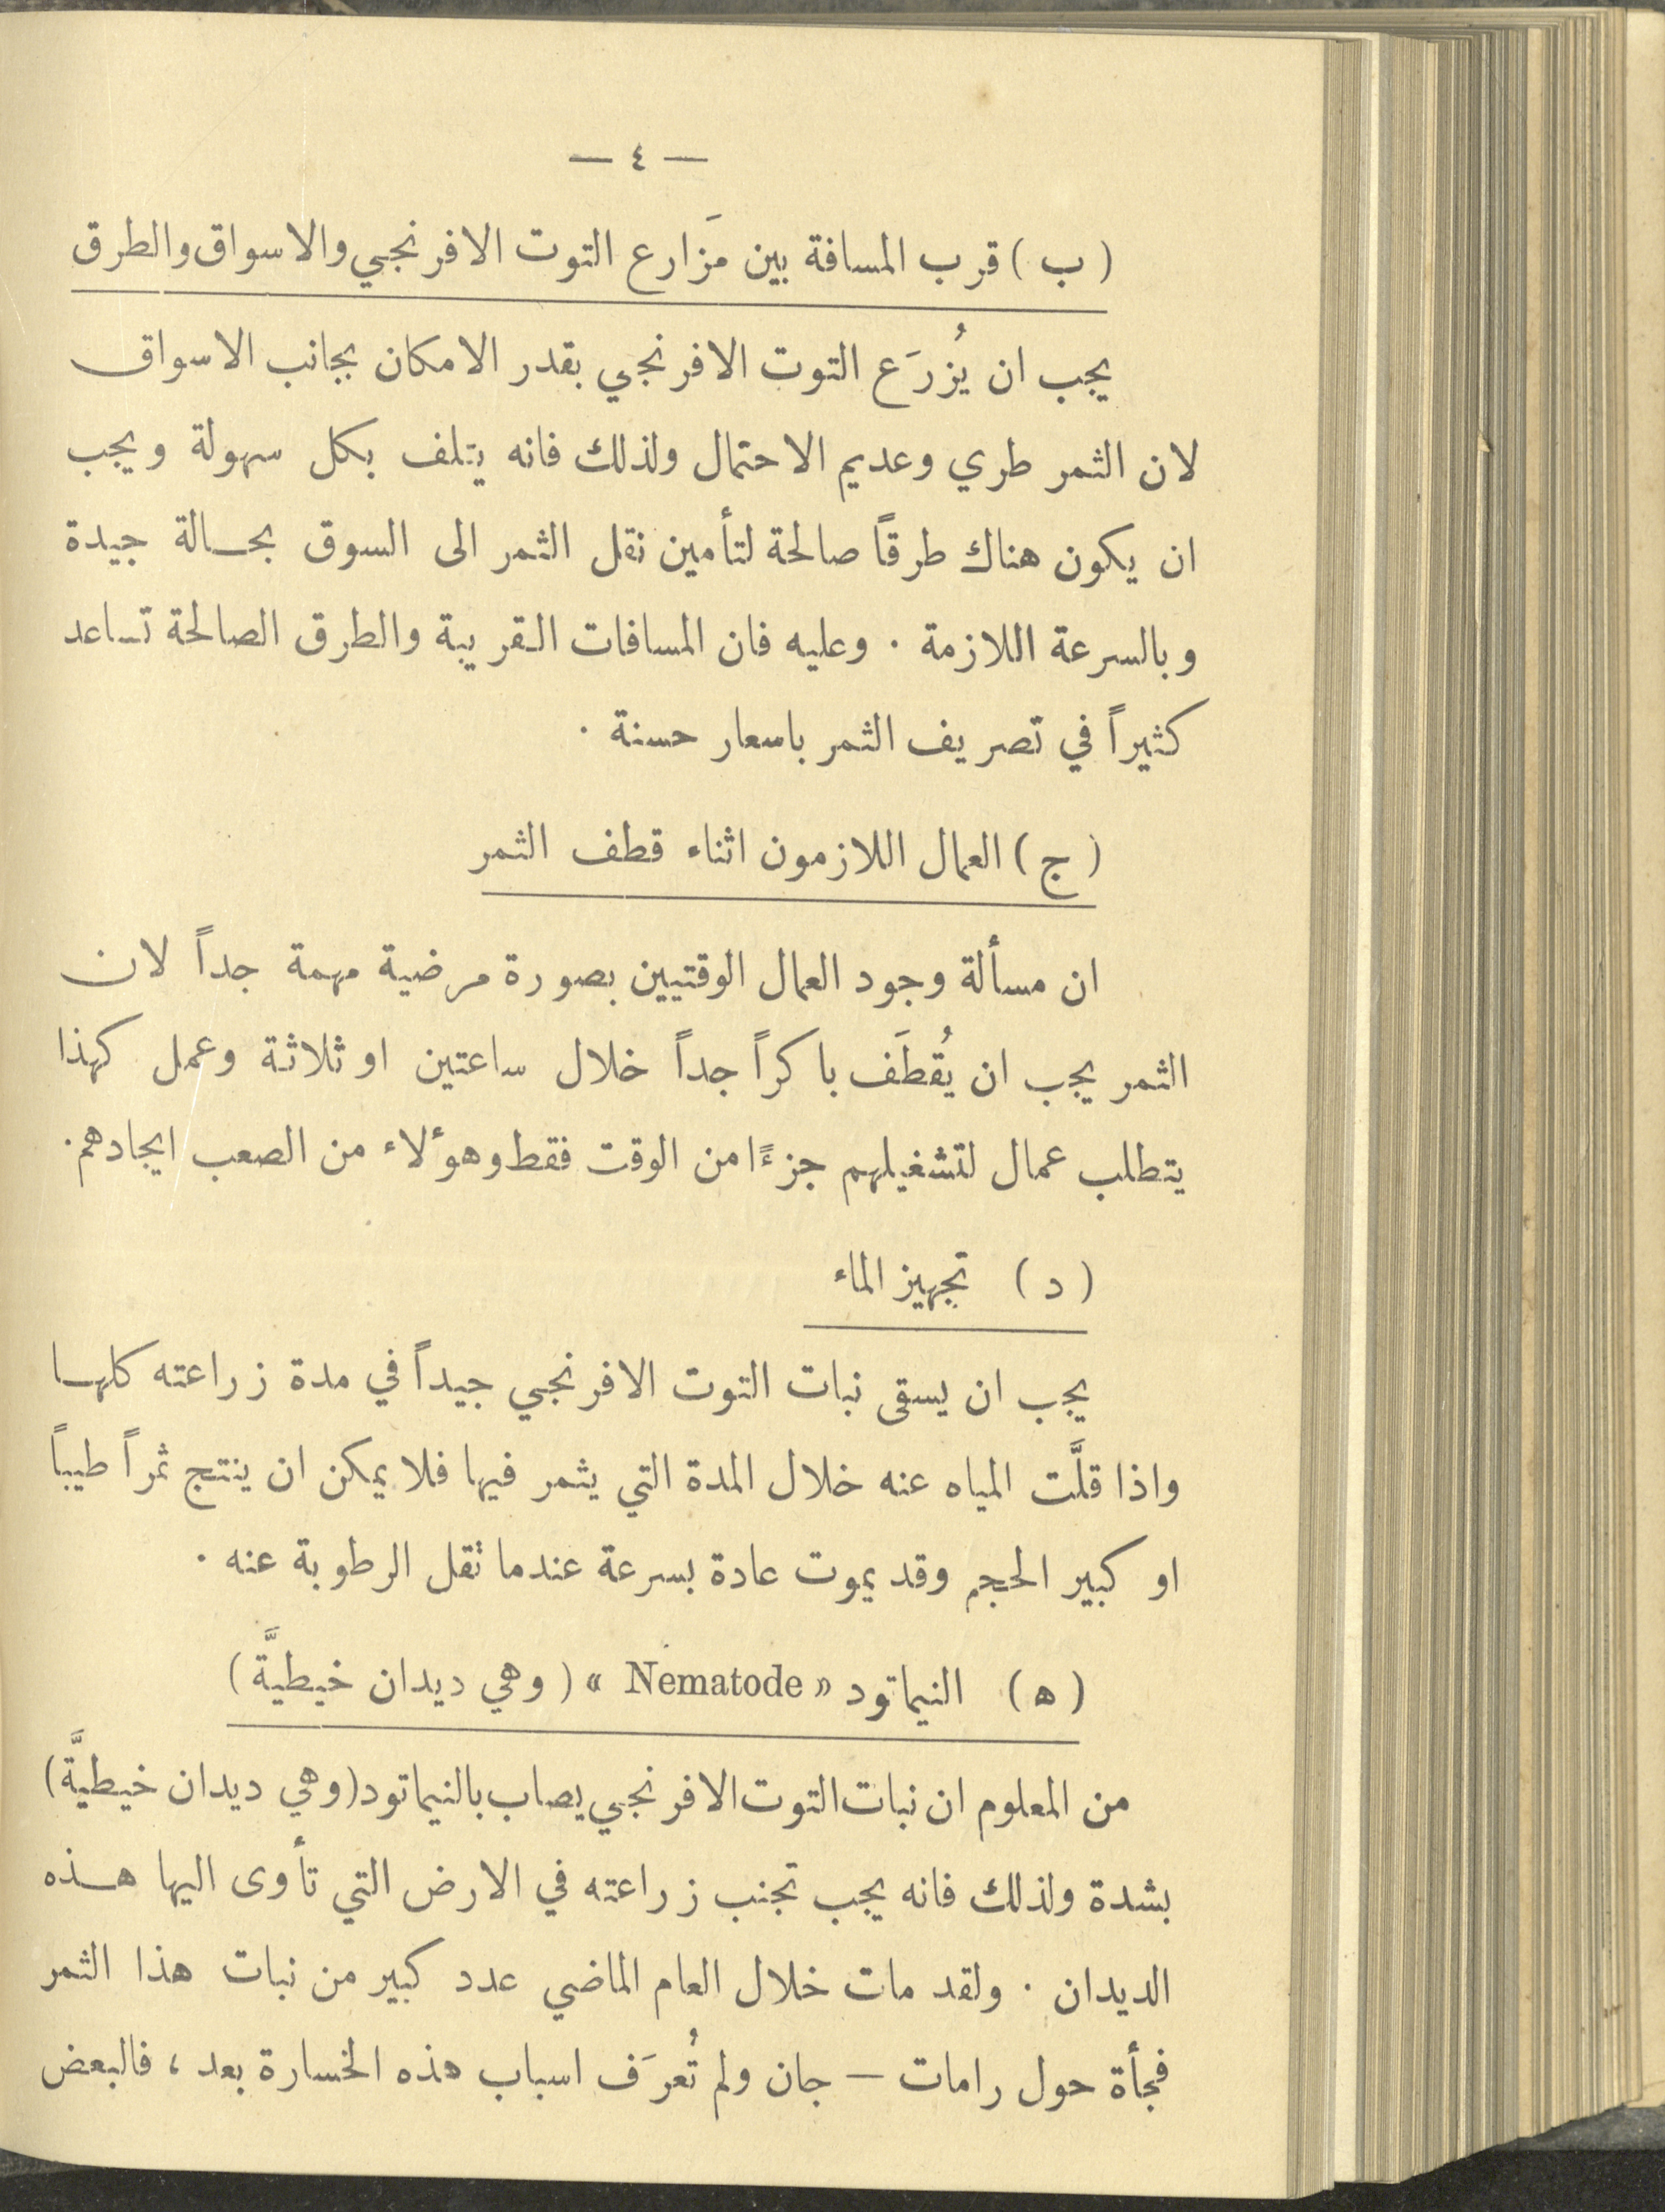 — ٤ —
( ب ) قرب المسافة بين مَزارع التوت الافرنجي والاسواق والطرق
يجب ان يُزرَع التوت الافرنجي بقدر الامكان بجانب الاسواق
لان الثمر طري وعديم الاحتمال ولذلك فانه يتلف بكل سهولة ويجب
ان يكون هناك طرقاً صالحة لتأمين نقل الثمر الى السوق بحالة جيدة
وبالسرعة اللازمة . وعليه فان المسافات القريبة والطرق الصالحة تساعد
كثيراً في تصريف الثمر باسعار حسنة .
( ج ) العمال اللازمون اثناء قطف الثمر
ان مسألة وجود العمال الوقتيين بصورة مرضية مهمة جداً لان
الثمر يجب ان يُقطَف باكراً جداً خلال ساعتين او ثلاثة وعمل كهذا
يتطلب عمال لتشغيلهم جزءًا من الوقت فقط وهؤلاء من الصعب ايجادهم .
( د ) تجهيز الماء
يجب ان يسقى نبات التوت الافرنجي جيداً في مدة زراعته كلها
واذا قلَّت المياه عنه خلال المدة التي يثمر فيها فلا يمكن ان ينتج ثمراً طيباً
او كبير الحجم وقد يموت عادة بسرعة عندما تقل الرطوبة عنه .
( ه ) النيماتود « Nematode » ( وهي ديدان خيطيَّة )
من المعلوم ان نبات التوت الافرنجي يصاب بالنيماتود (وهي ديدان خيطيَّة)
بشدة ولذلك فانه يجب تجنب زراعته في الارض التي تأوى اليها هذه
الديدان . ولقد مات خلال العام الماضي عدد كبير من نبات هذا الثمر
فجأة حول رامات — جان ولم تُعرَف اسباب هذه الخسارة بعد ، فالبعض